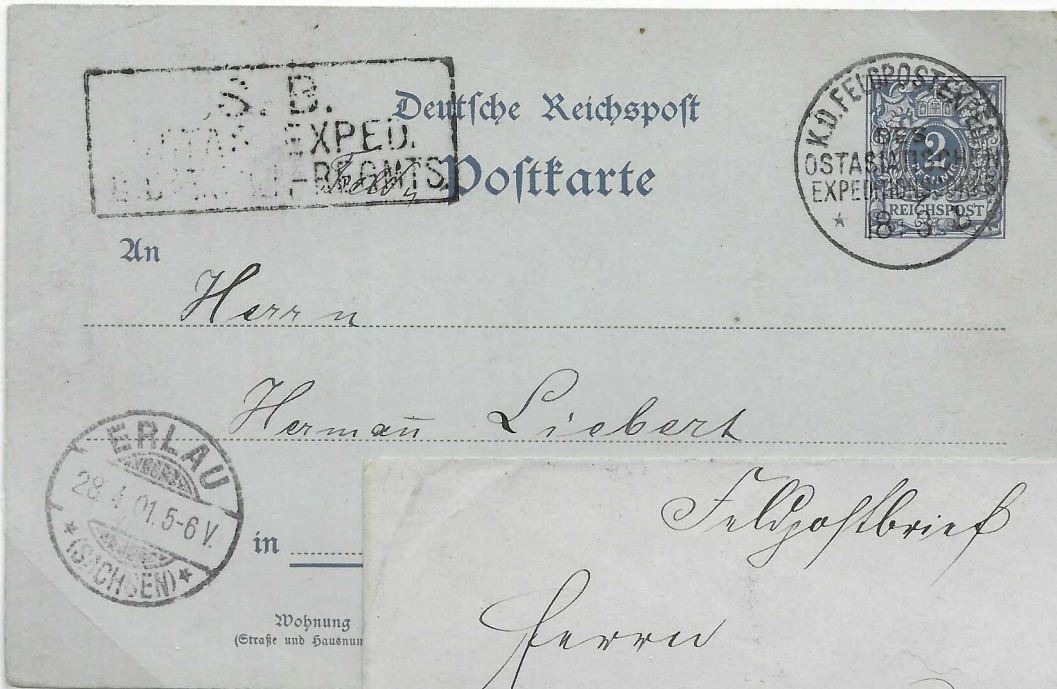 S. B.
EXPED.
Deutsche Reichspost
Postkarte
K.D. FELDPOSTEXPED.
DES
OSTASIATISCHEN
EXPEDITIONSCORPS
* 18/3 *
2
REICHSPOST
An
Herrn
Hermañ Liebert
ERLAU
28.4.01.5-6V.
*(SACHSEN)*
in
Wohnung
(Straße und Hausnum
Feldpostbrief
Herrn